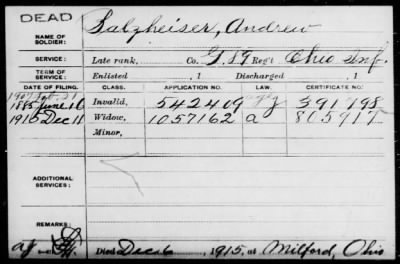 DEAD
NAME OF SOLDIER: Salzheiser, Andrew
SERVICE: Late rank, Co. G. 89 Reg't Ohio Inf.
TERM OF SERVICE: Enlisted , 1 Discharged , 1
DATE OF FILING. CLASS. APPLICATION NO. LAW. CERTIFICATE NO.
1885 June 16 Invalid, 542409 391798
1915 Dec 11 Widow, 1057162 a 805917
Minor,
ADDITIONAL SERVICES:
REMARKS:
Died Dec 6, 1915, at Milford, Ohio